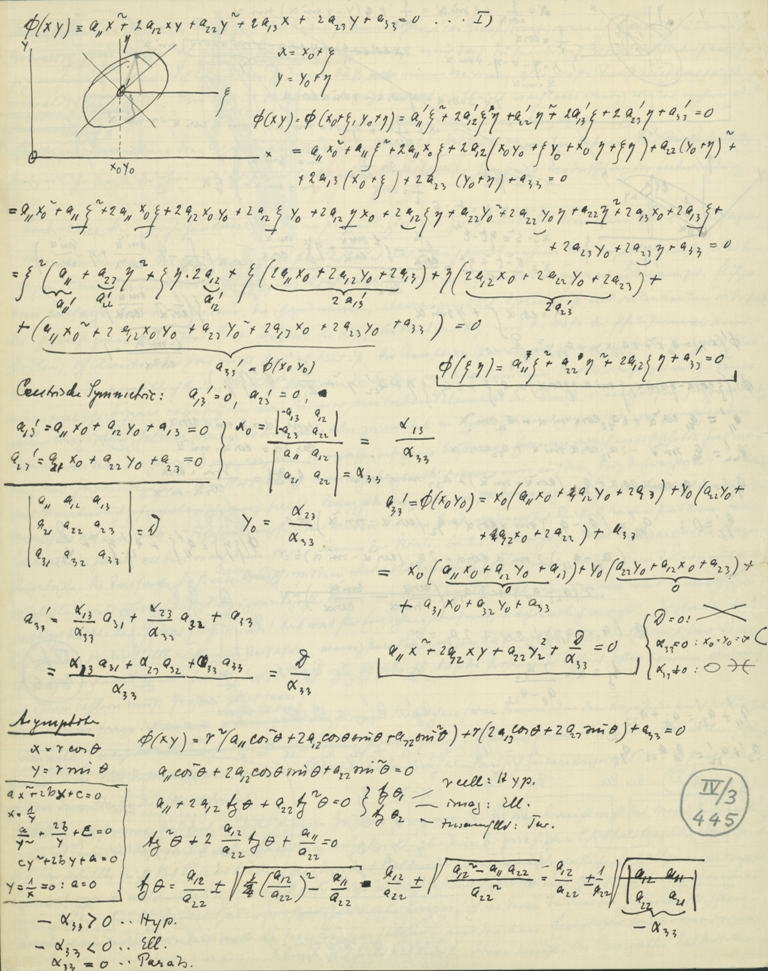 ϕ(xy) ≡ a₁₁x² + 2a₁₂xy + a₂₂y² + 2a₁₃x + 2a₂₃y + a₃₃ = 0 ... I)
y
η
ξ
x
x₀y₀
x = x₀ + ξ
y = y₀ + η
ϕ(xy) = ϕ(x₀+ξ, y₀+η) = a₁₁'ξ² + 2a₁₂'ξη + a₂₂'η² + 2a₁₃'ξ + 2a₂₃'η + a₃₃' = 0
= a₁₁x₀² + a₁₁ξ² + 2a₁₁x₀ξ + 2a₁₂(x₀y₀ + ξy₀ + x₀η + ξη) + a₂₂(y₀+η)² +
+ 2a₁₃(x₀+ξ) + 2a₂₃(y₀+η) + a₃₃ = 0
= a₁₁x₀² + a₁₁ξ² + 2a₁₁x₀ξ + 2a₁₂x₀y₀ + 2a₁₂ξy₀ + 2a₁₂ηx₀ + 2a₁₂ξη + a₂₂y₀² + 2a₂₂y₀η + a₂₂η² + 2a₁₃x₀ + 2a₁₃ξ +
+ 2a₂₃y₀ + 2a₂₃η + a₃₃ = 0
= ξ²a₁₁ + a₂₂η² + ξη·2a₁₂ + ξ(2a₁₁x₀ + 2a₁₂y₀ + 2a₁₃) + η(2a₁₂x₀ + 2a₂₂y₀ + 2a₂₃) +
a₁₁' a₂₂' a₁₂' 2a₁₃' 2a₂₃'
+ (a₁₁x₀² + 2a₁₂x₀y₀ + a₂₂y₀² + 2a₁₃x₀ + 2a₂₃y₀ + a₃₃) = 0
a₃₃' = ϕ(x₀y₀)
ϕ(ξη) = a₁₁ξ² + a₂₂η² + 2a₁₂ξη + a₃₃' = 0
Centrische Symmetrie: a₁₃' = 0, a₂₃' = 0,
a₁₃' = a₁₁x₀ + a₁₂y₀ + a₁₃ = 0
a₂₃' = a₂₁x₀ + a₂₂y₀ + a₂₃ = 0
x₀ = |-a₁₃ a₁₂; -a₂₃ a₂₂| / |a₁₁ a₁₂; a₂₁ a₂₂| = α₃₃ = α₁₃/α₃₃
|a₁₁ a₁₂ a₁₃|
|a₂₁ a₂₂ a₂₃| = D
|a₃₁ a₃₂ a₃₃|
y₀ = α₂₃/α₃₃
a₃₃' = ϕ(x₀y₀) = x₀(a₁₁x₀ + 2a₁₂y₀ + 2a₁₃) + y₀(a₂₂y₀ +
= x₀(a₁₁x₀ + a₁₂y₀ + a₁₃) + y₀(a₂₂y₀ + a₁₂x₀ + a₂₃) +
0 0
+ a₃₁x₀ + a₃₂y₀ + a₃₃
a₃₃' = α₁₃/α₃₃ a₃₁ + α₂₃/α₃₃ a₃₂ + a₃₃
= (α₁₃a₃₁ + α₂₃a₃₂ + α₃₃a₃₃)/α₃₃ = D/α₃₃
a₁₁x² + 2a₁₂xy + a₂₂y² + D/α₃₃ = 0
D = 0:
α₃₃ = 0 : x₀ = y₀ = ∞
α₃₃ ≠ 0 :
Asymptote
x = r cos θ
y = r sin θ
ϕ(xy) = r²(a₁₁cos²θ + 2a₁₂cosθ sinθ + a₂₂sin²θ) + r(2a₁₃cosθ + 2a₂₃ sinθ) + a₃₃ = 0
a₁₁cos²θ + 2a₁₂cosθ sinθ + a₂₂sin²θ = 0
a₁₁ + 2a₁₂ tgθ + a₂₂ tg²θ = 0 } tgθ₁ tgθ₂
reell: Hyp.
imag: Ell.
tg²θ + 2 a₁₂/a₂₂ tgθ + a₁₁/a₂₂ = 0
ax² + 2bx + c = 0
x = 1/y
a/y² + 2b/y + c = 0
cy² + 2by + a = 0
y = 1/x = 0 : a = 0
tgθ = a₁₂/a₂₂ ± √((a₁₂/a₂₂)² - a₁₁/a₂₂) = a₁₂/a₂₂ ± √((a₁₂² - a₁₁a₂₂)/a₂₂²) = a₁₂/a₂₂ ± 1/a₂₂ √|a₁₂ a₁₁; a₂₂ a₂₁|
- α₃₃
- α₃₃ > 0 .. Hyp.
- α₃₃ < 0 .. Ell.
α₃₃ = 0 .. Parab.
IV/3
445